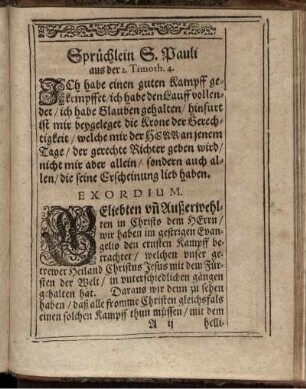 Sprüchlein S. Pauli
aus der 2. Timoth. 4.
ICh habe einen guten Kampff ge-
kempffet / ich habe den Lauff vollen-
det / ich habe Glauben gehalten / hinfurt
ist mir beygeleget die Krone der Gerech-
tigkeit / welche mir der HERR an jenem
Tage / der gerechte Richter geben wird /
nicht mir aber allein / sondern auch al-
len / die seine Erscheinung lieb haben.
EXORDIUM.
GEliebten vñ Außerwehl-
ten in Christo dem HErrn /
wir haben im gestrigen Evan-
gelio den ernsten Kampff be-
trachtet / welchen vnser ge-
trewer Heiland Christus Jesus mit dem Für-
sten der Welt / in vnterschiedlichen gängen
gehalten hat. Daraus wir denn zu sehen
haben / daß alle fromme Christen gleichsfals
einen solchen Kampff thun müssen / mit dem
A ij helli-